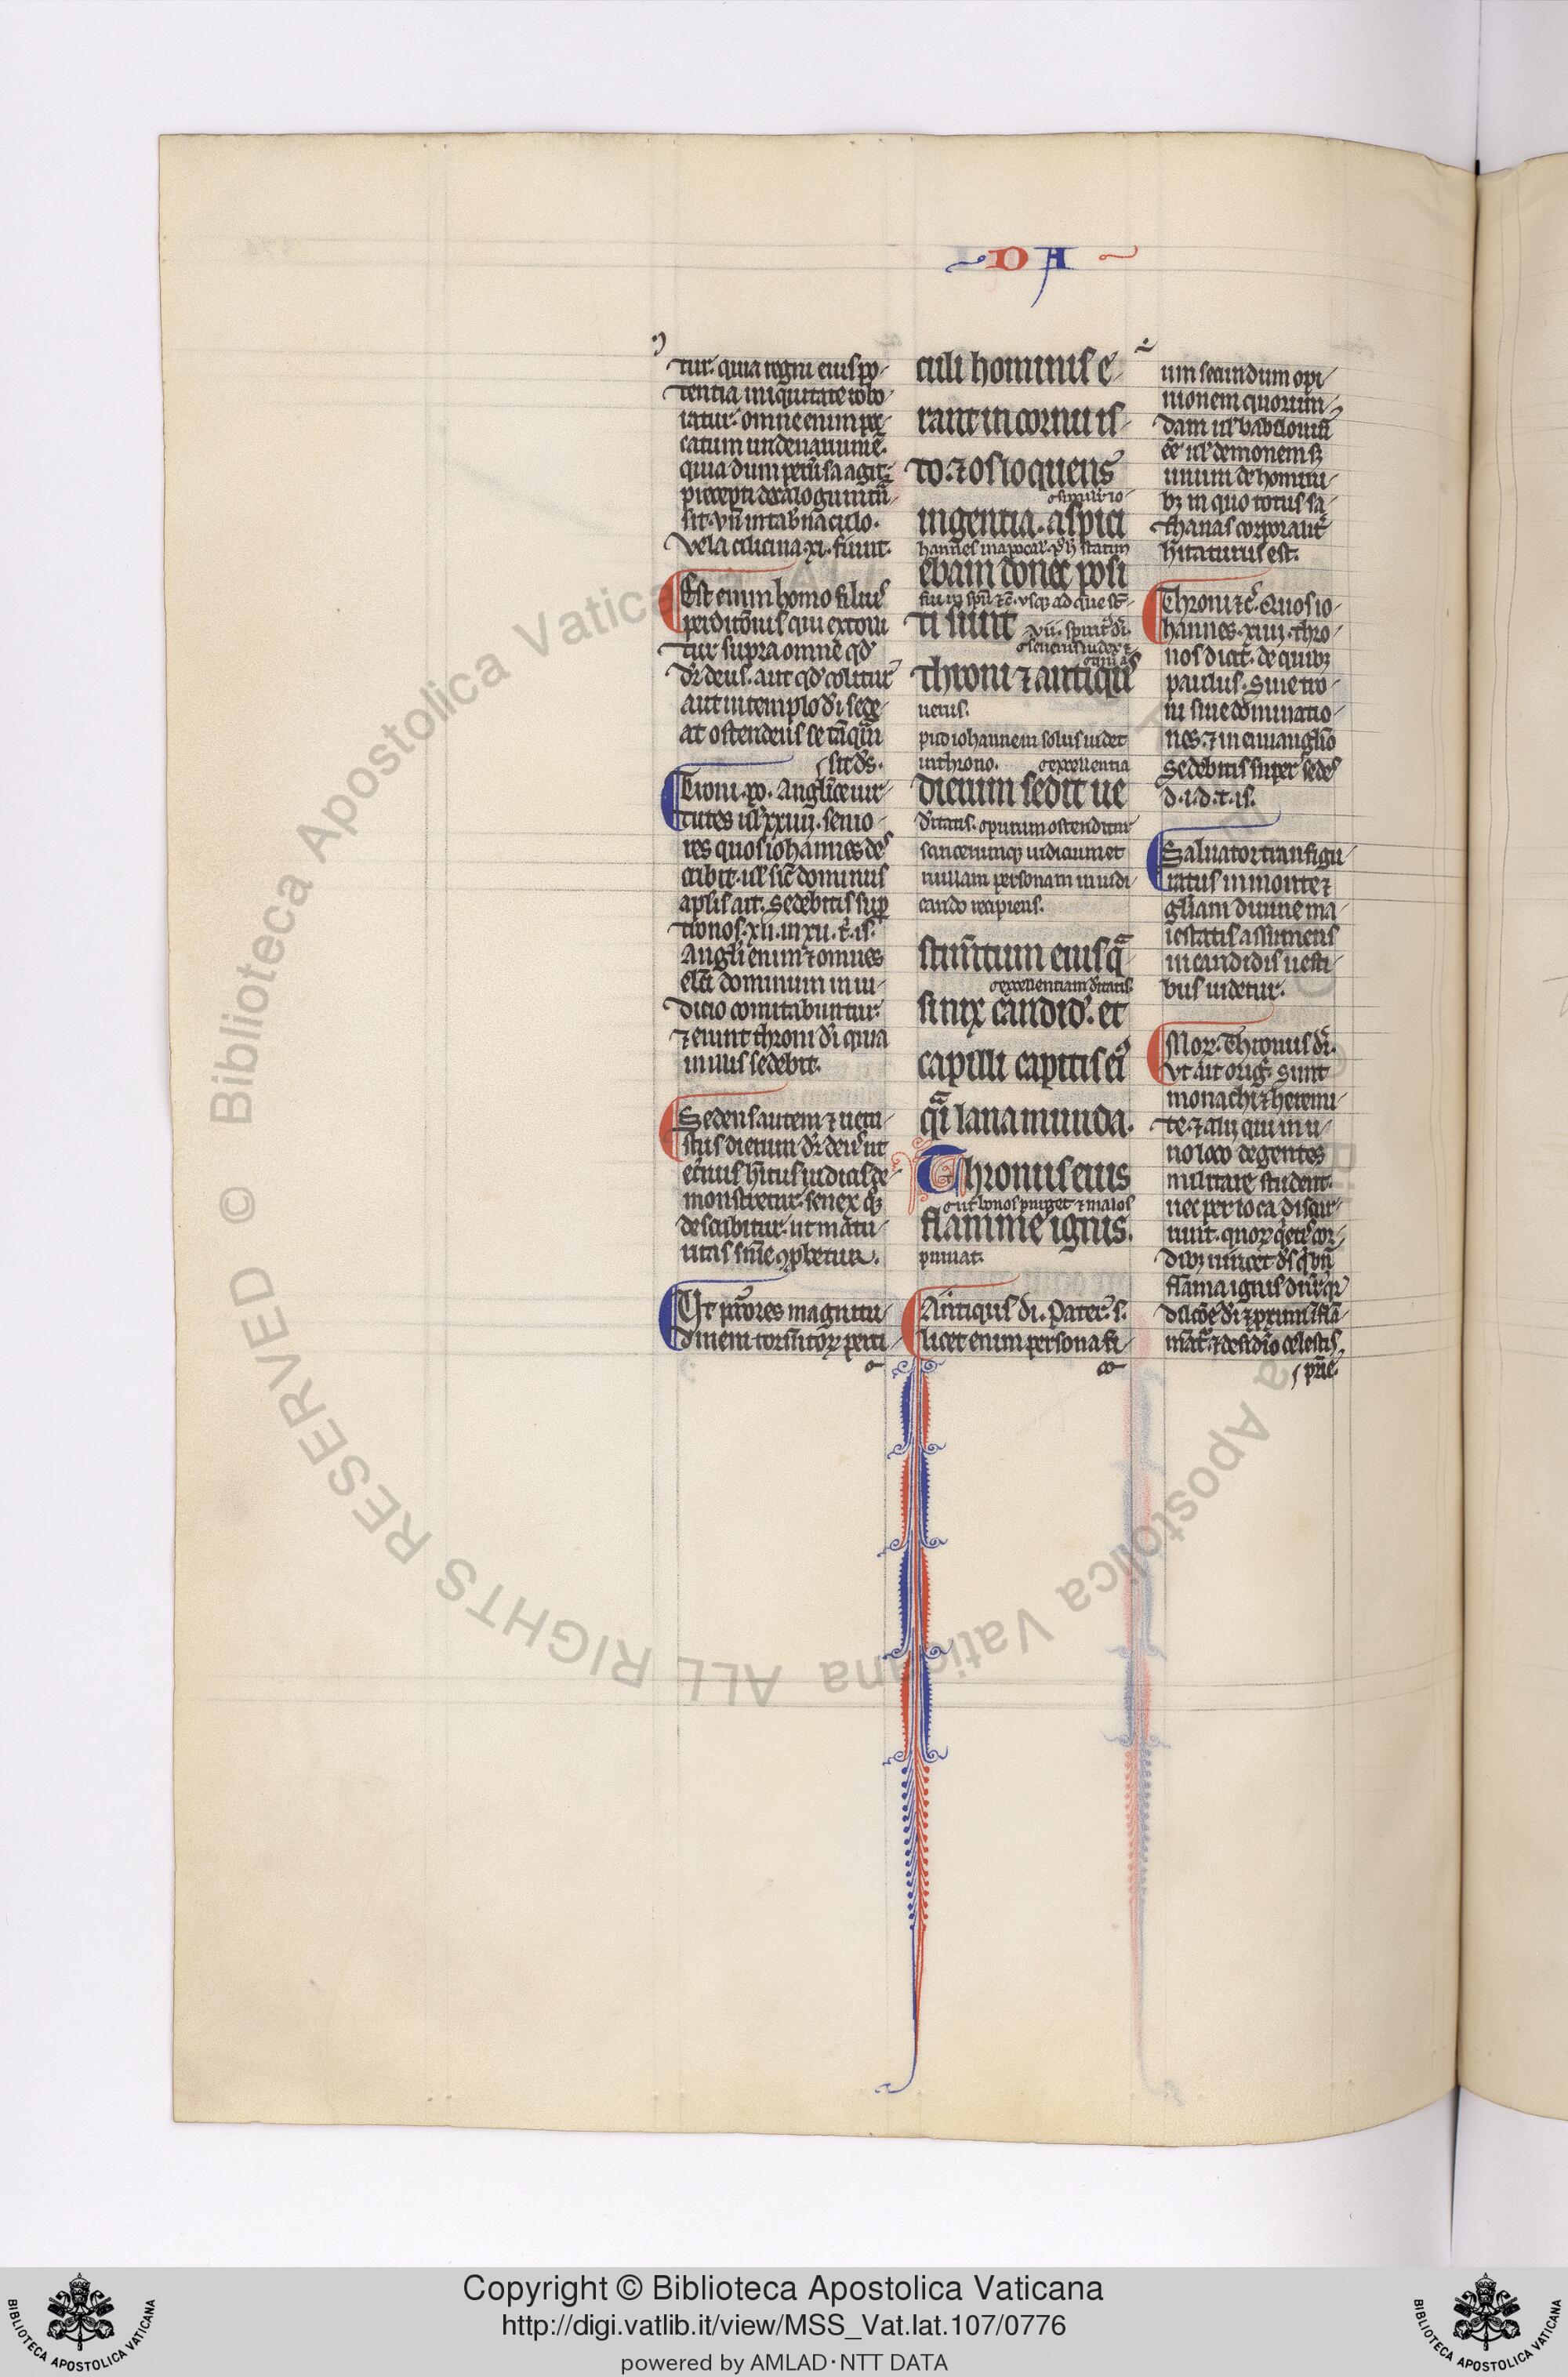 DA
tur. quia regni eius po-
tentia iniquitate robo-
ratur. omne enim pec-
catum undenarium ē.
quia dum peruersa agit.
precepti decalogum trā-
sit. vñ in tabnaculo.
Vela cilicina .xi. fiunt.
Est enim homo filius
perditōnis qui extolli
tur supra omne qd̓
dr̄ deus. aut qd̓ colitur
aut in templo dī sede-
at ostendens se tāqͣm
sit dṡ.
Troni. po. Anglice uir-
tutes ul̓ xxiiii. senio-
res quos iohannes des
cribit. ul̓ sic̄ dominus
aplis ait. Sedebitis sup
tronos .xii. in xii. t̄. is.
Angli enim ⁊ omnes
elc̄i dominum in iu-
dicio comitabuntur.
⁊ erunt throni dī quia
in illis sedebit.
Sedens autem ⁊ uetu-
stus dierum dr̄ deus ut
et̄nus
monstretur. senex qͦꝫ
describitur. ut matu-
ritas sn̄ie ꝯpbetur.
magnitu-
dinem tormtoꝝ
culi hominis e-
rant in cornu is-
to. ⁊ os loquens
similit̄ io-
ingentia. aspici
hannes in apocal̓. statim
ebam donec posi
fui in spū ⁊c̄. vsqꝫ ad que st̄-
ti sunt
vii. spirit̄ dī.
throni ⁊ antiquꝰ
uetus.
iohannem solus uidet
in throno. excellentia
dierum sedit ue
d̓itatis. ostenditur
iudicium et
nullam personam in iudi
cando recipiens.
stimtum eius qͣ
excellentiam d̓itatis.
si nix candid̓. et
capilli capitis eiꝰ
qͣi lana munda.
Thronus eius
ut bonos purget ⁊ malos
flamme ignis.
puniat.
Antiquꝰ di. Pater. s.
licet enim persona fi-
um secundum opi-
nionem quorun-
dam ul̓
ēē ul̓ demonem sꝫ
unum de homini-
bꝫ in quo totus sa-
thanas corporalit̄
hītaturus est.
Throni ⁊c̄. Quos io-
hannes .xxiiii. thro-
nos dicit. de quibꝫ
paulus. Siue tro-
ni siue dominatio-
nes. ⁊ in euuanglio
Sedebitis super sedes
d. i. d. t. is.
Saluator transfigu-
ratus in monte ⁊
gl̄iam diuine ma-
iestatis assumens
in candidis uesti-
bus uidetur.
Mor. Thronus dī.
vt ait orig̓. sunt
monachi ⁊ heremi-
te. ⁊ alii qui in u-
no loco degentes
militare student.
nec per loca discur-
runt.
flāma ignis
celestis
pr̄ie.
Copyright © Biblioteca Apostolica Vaticana
http://digi.vatlib.it/view/MSS_Vat.lat.107/0776
powered by AMLAD·NTT DATA
BIBLIOTECA APOSTOLICA VATICANA
BIBLIOTECA APOSTOLICA VATICANA
© Biblioteca Apostolica Vaticana ALL RIGHTS RESERVED